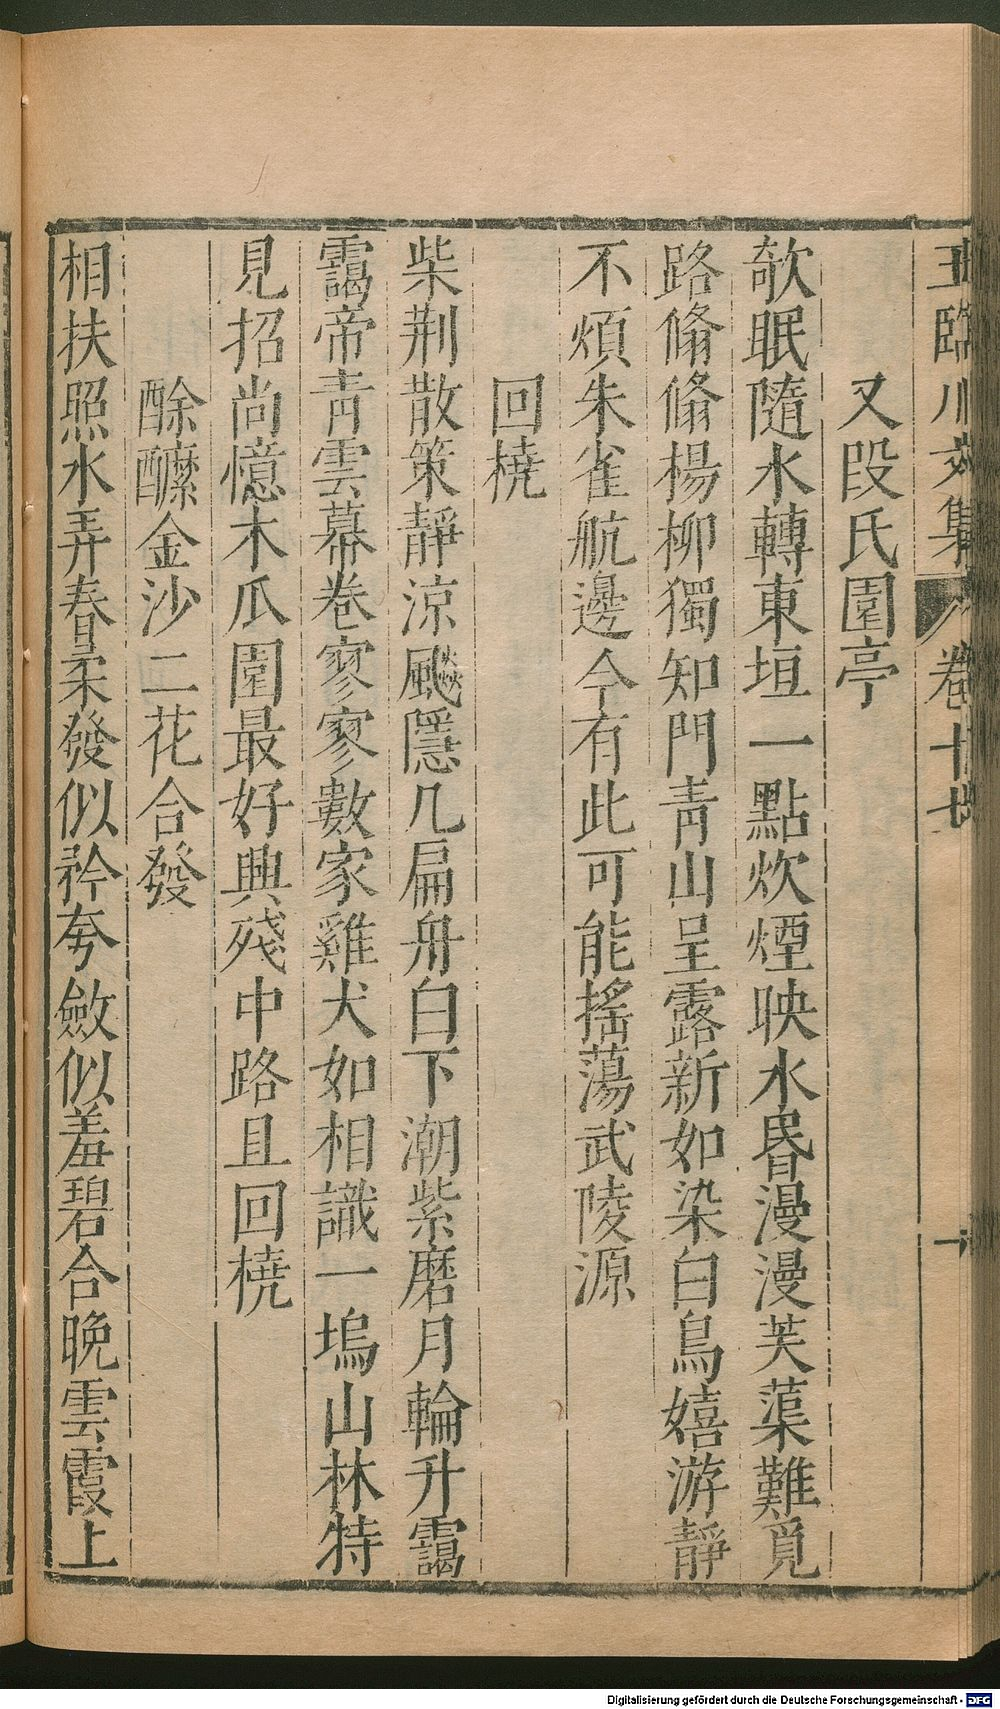 王臨川文集 卷十七 一
又段氏園亭
欹眠隨水轉東垣一點炊煙映水昬漫漫芙蕖難覓
路翛翛楊柳獨知門青山呈露新如染白鳥嬉游靜
不煩朱雀航邊今有此可能搖蕩武陵源
回橈
柴荆散策靜涼飇隱几扁舟白下潮紫磨月輪升靄
靄帝青雲幕卷寥寥數家雞犬如相識一塢山林特
見招尚憶木瓜園最好興殘中路且回橈
酴醿金沙二花合發
相扶照水弄春柔發似矜夸斂似羞碧合晚雲霞上
Digitalisierung gefördert durch die Deutsche Forschungsgemeinschaft - DFG